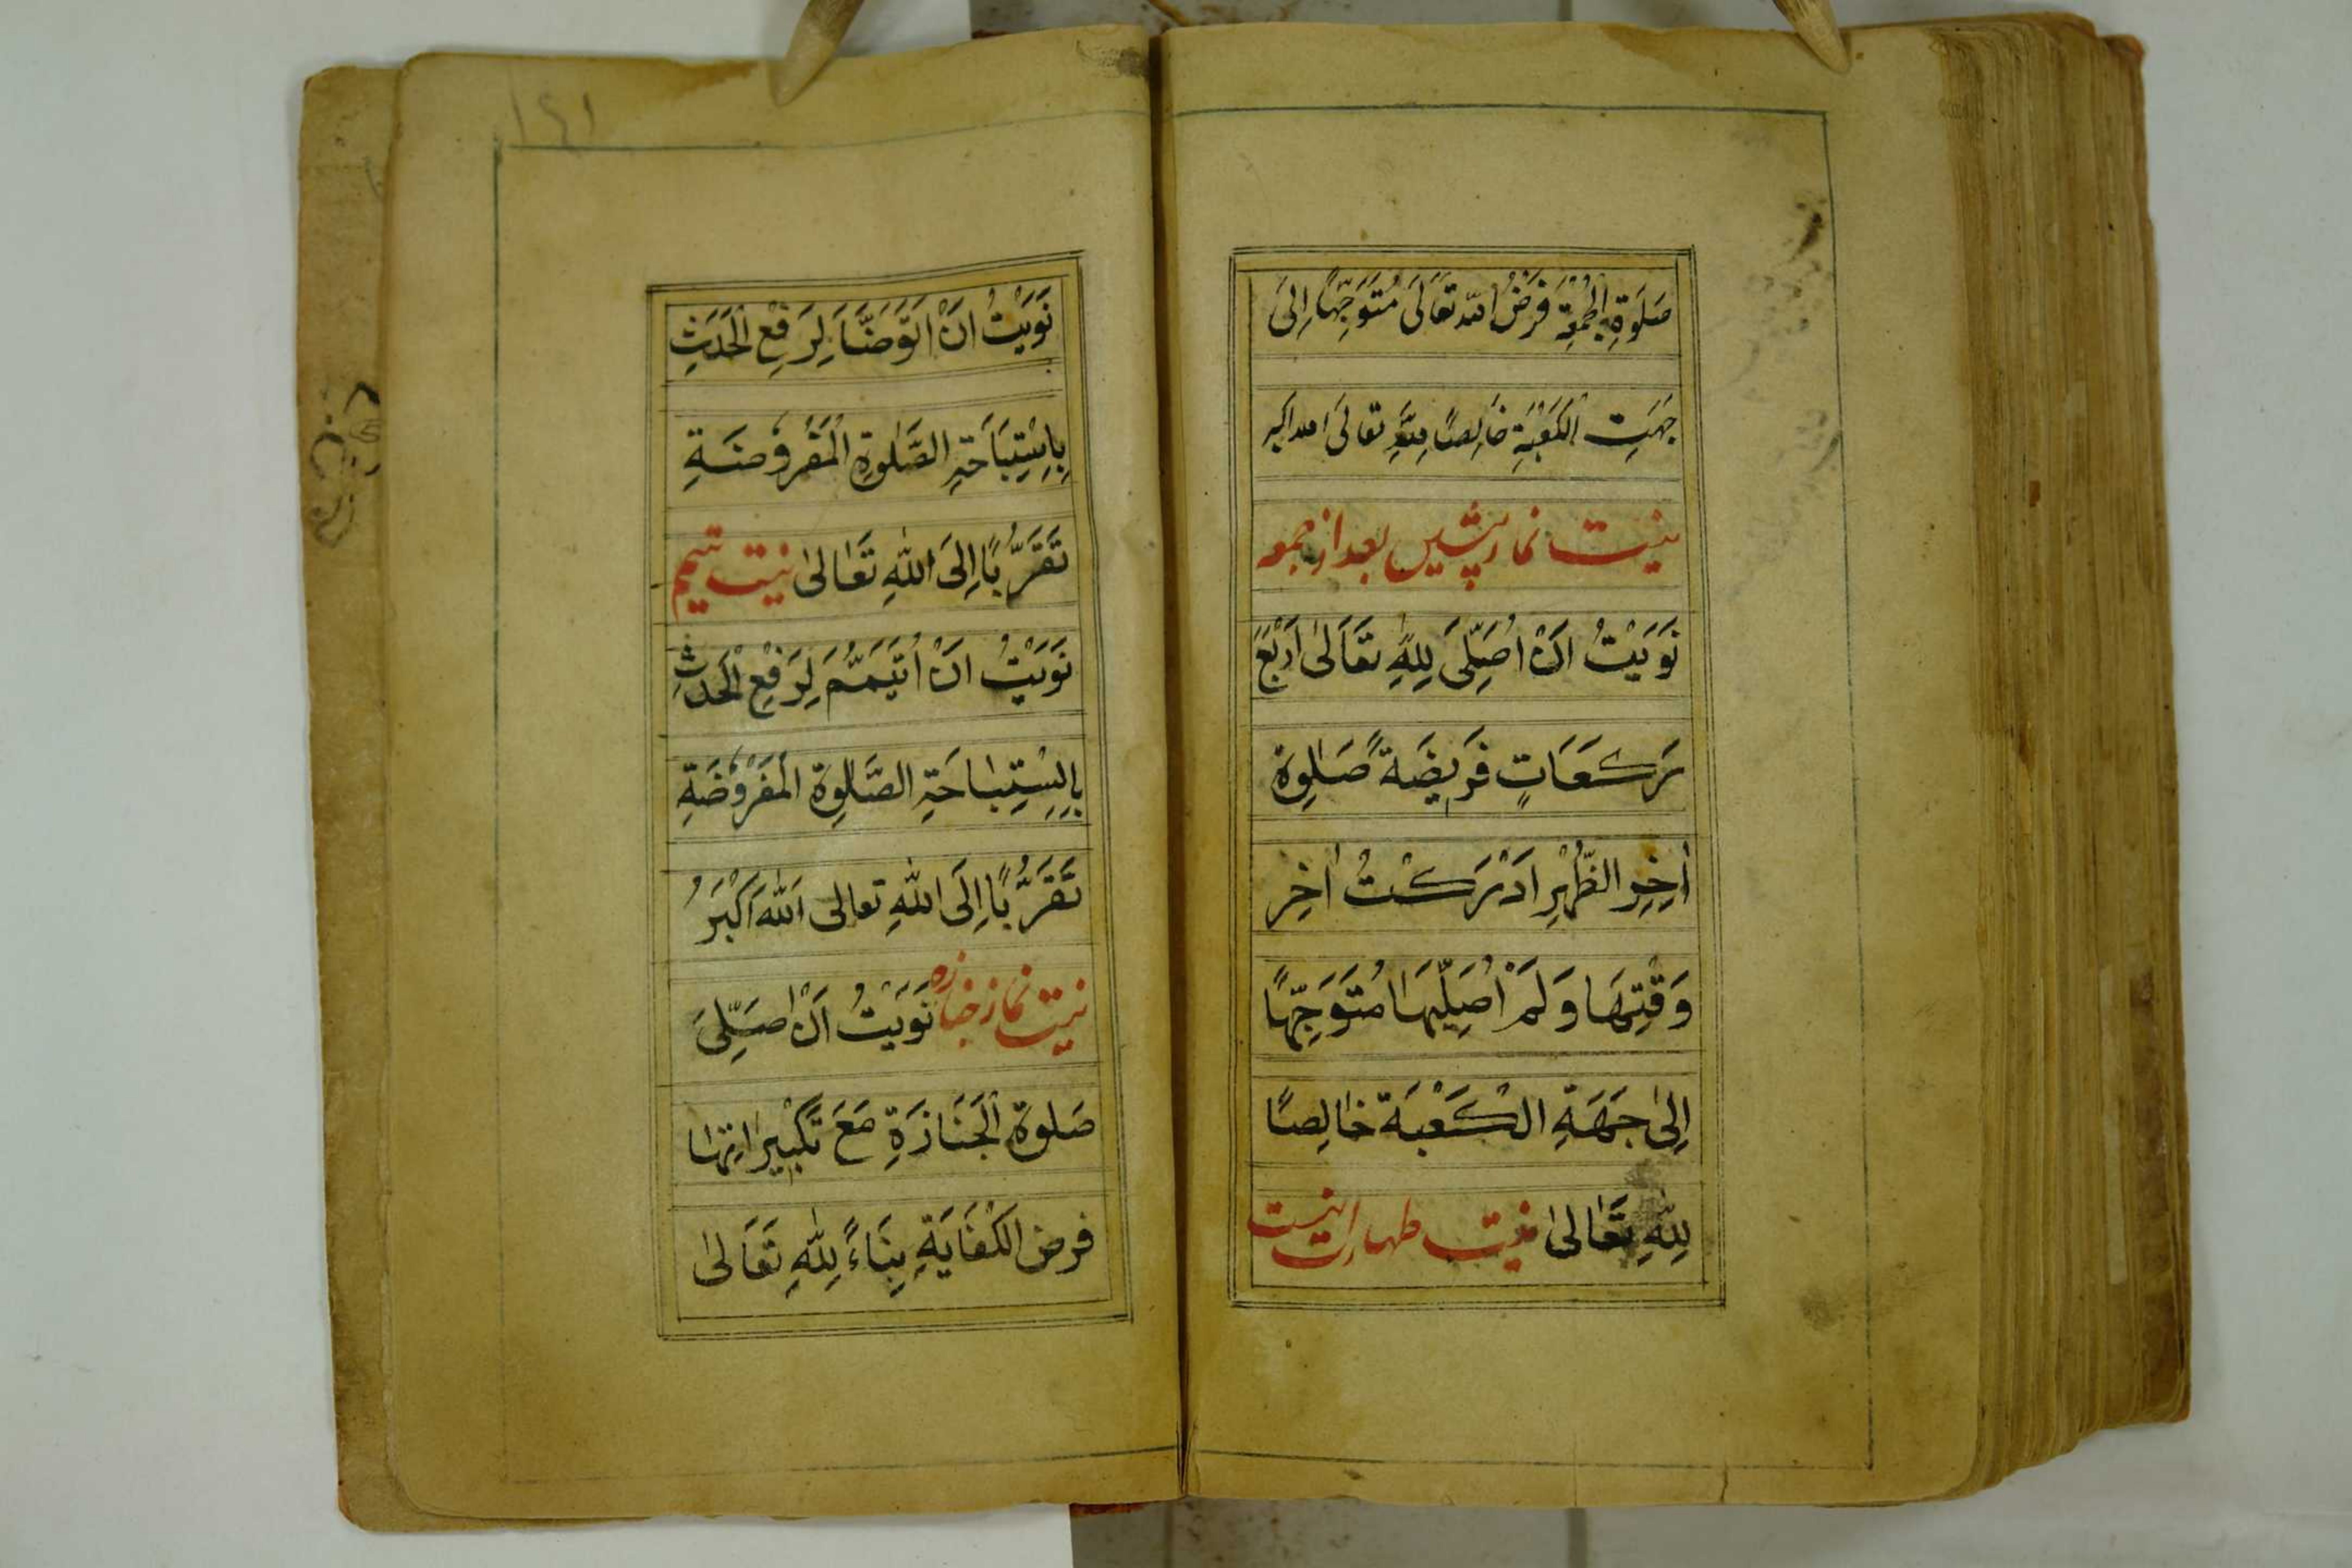 صَلَوةِ الْجُمُعَةِ فَرْضُ اللّٰه تَعَالَى مُتَوَجِّهًا اِلَى
جِهَتِ الْكَعْبَةِ خَالِصًا لِلّٰهِ تعَالَى الله اكبر
نیت نماز پیشین بعد از جمعه
نَوَيْتُ اَنْ اُصَلِّىَ لِلّٰهِ تَعَالىٰ اَرْبَعَ
رَكَعَاتٍ فَرِيضَةً صَلٰوةَ
اٰخِرِ الظُّهْرِ اَدْرَكْتُ اٰخِرَ
وَقْتِهَا وَلَمْ اُصَلِّيهَا مُتَوَجِّهًا
اِلىٰ جَهَةِ الْكَعْبَة خَالِصًا
لِلّٰهِ تَعَالىٰ نیت طهارت نیست
نَوَيْتُ اَنْ اَتَّوَضَّاَ لِرَفْعِ الْحَدَثِ
بِاِسْتِبَاحَةِ الصَّلٰوةِ الْمَفْرُوضَةِ
تَقَرُّبًا اِلَى اللّٰهِ تَعَالىٰ نیت تیمم
نَوَيْتُ اَنْ اَتَيَمَّمَ لِرَفْعِ الْحَدَثِ
بِاِسْتِبَاحَةِ الصَّلٰوةِ الْمَفْرُوضَةِ
تَقَرُّبًا اِلَى اللّٰهِ تعالى اَللّٰهُ اَكْبَرُ
نیت نماز جنازه نَوَيْتُ اَنْ اُصَلِّىَ
صَلوةَ الْجَنَازَةِ مَعَ تَكْبِيرَاتِهَا
فرض الْكَفَايَةِ بِنَاءً لِلّٰهِ تَعَالىٰ